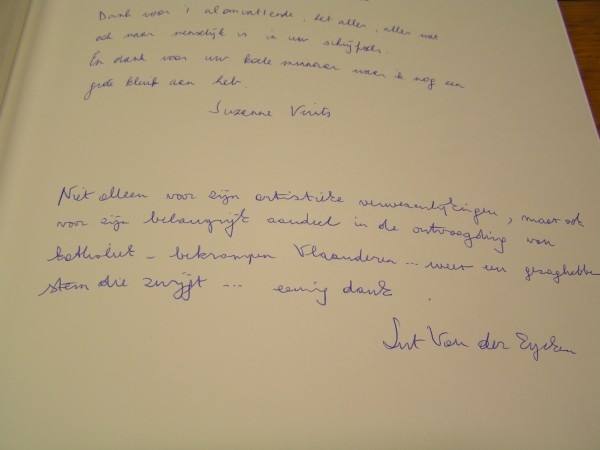 Dank voor 't alomvattende, het alles, alles wat
ook maar menselijk is in uw schrijfsels.
En dank voor uw kode waar ik nog een
grote kluif aan heb.
Suzanne Vints
Niet alleen voor zijn artistieke verwezenlijkingen, maar ook
voor zijn belangrijk aandeel in de ontvoogding van
katholiek - bekrompen Vlaanderen ... weer een gezaghebbe
stem die zwijgt ... eeuwig dank.
Lut Van der Eycken